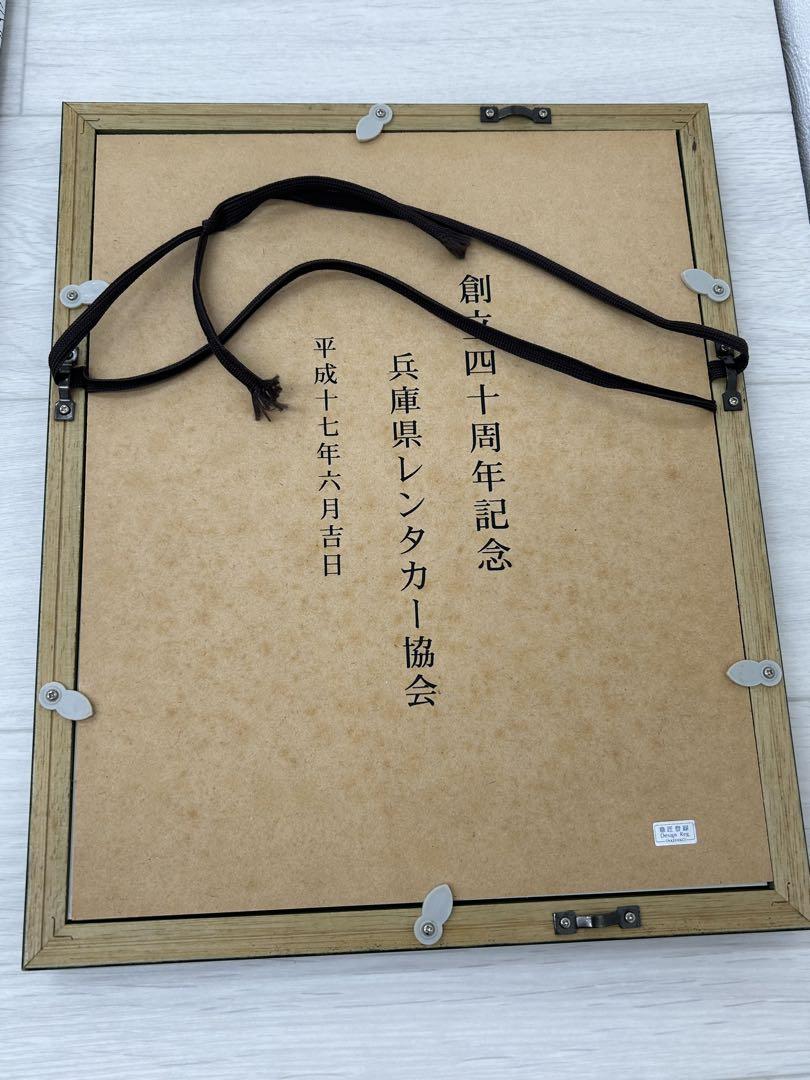 創立四十周年記念
兵庫県レンタカー協会
平成十七年六月吉日
意匠登録
Design Reg.